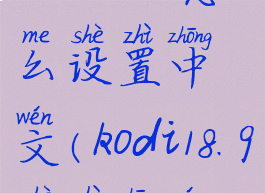 me shè zhì zhōng
么设置中
wén
文(kodi18.9